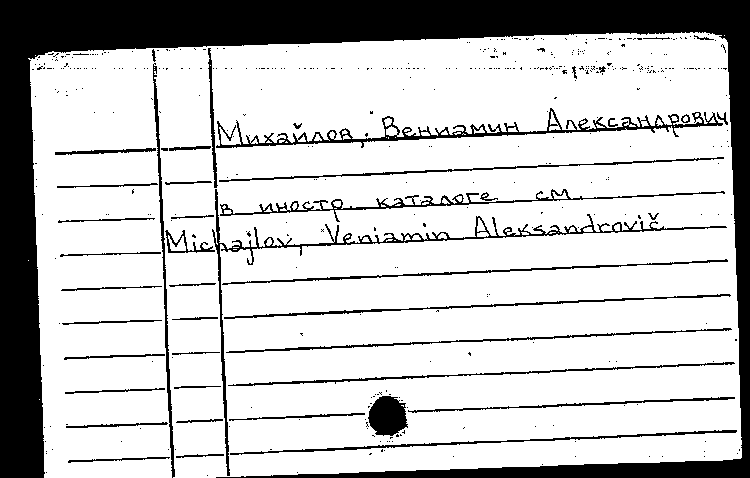 Михайлов, Вениамин Александрович
в иностр. каталоге см.
Michajlov, Veniamin Aleksandrovič